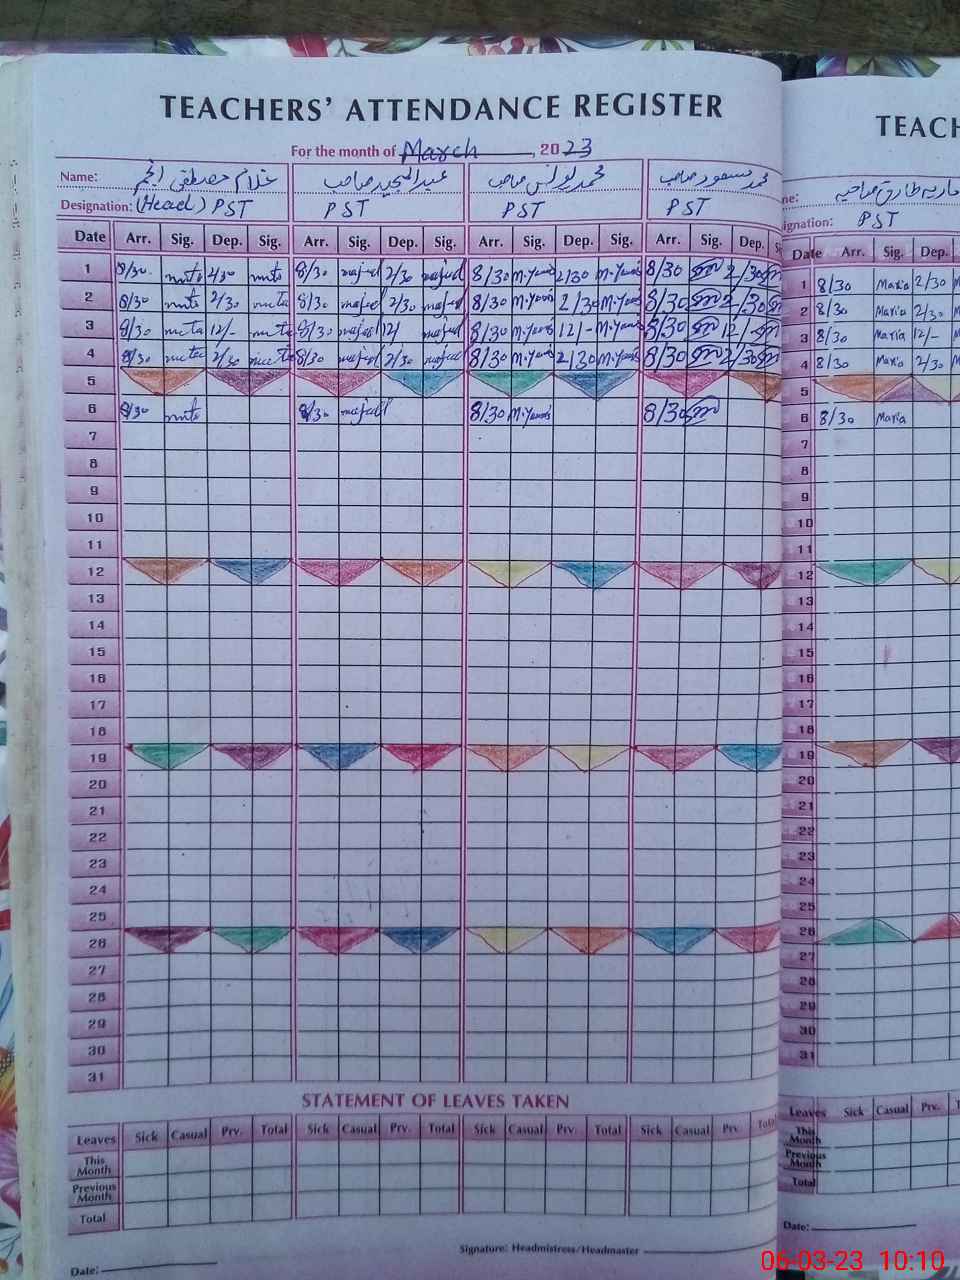 TEACHERS' ATTENDANCE REGISTER
TEACH
For the month of March, 2023
Name: غلام مصطفی انجم عبدالمجید صاحب محمد یونس صاحب محمد مسعود صاحب
ne: ماریہ طارق صاحبہ
Designation: (Head) PST PST PST PST
ignation: PST
Date Arr. Sig. Dep. Sig. Arr. Sig. Dep. Sig. Arr. Sig. Dep. Sig. Arr. Sig. Dep.
Date Arr. Sig. Dep.
1 8/30 2/30 8/30 majeed 2/30 majeed 8/30 M.Younis 2/30 M.Younis 8/30 2/30
1 8/30 Maria 2/30
2 8/30 2/30 8/30 majeed 2/30 majeed 8/30 M.Younis 2/30 M.Younis 8/30 2/30
2 8/30 Maria 2/30
3 8/30 12/- 8/30 majeed 12/ majeed 8/30 M.Younis 12/- M.Younis 8/30 12/-
3 8/30 Maria 12/-
4 8/30 2/30 8/30 majeed 2/30 majeed 8/30 M.Younis 2/30 M.Younis 8/30 2/30
4 8/30 Maria 2/30
5
5
6 8/30 8/30 majeed 8/30 M.Younis 8/30
6 8/30 Maria
7
7
8
8
9
9
10
10
11
11
12
12
13
13
14
14
15
15
16
16
17
17
18
18
19
19
20
20
21
21
22
22
23
23
24
24
25
25
26
26
27
27
28
28
29
29
30
30
31
31
STATEMENT OF LEAVES TAKEN
Leaves Sick Casual Prv. Total Sick Casual Prv. Total Sick Casual Prv. Total Sick Casual Prv. Total
Leaves Sick Casual Prv. T
This Month
This Month
Previous Month
Previous Month
Total
Total
Signature: Headmistress/Headmaster
Date:
Date:
06-03-23 10:10